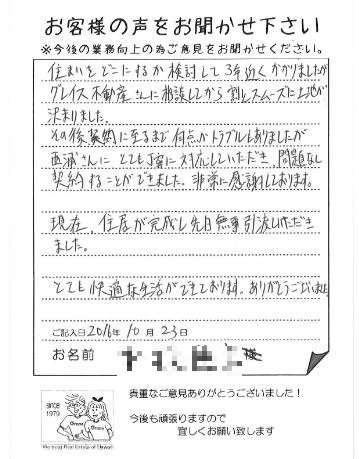 お客様の声をお聞かせ下さい
※今後の業務向上の為ご意見をお聞かせください。
住まいをどこにするか検討して3年近くかかりましたが
グレイス不動産さんに相談してから割とスムーズに土地が
決まりました。
その後契約に至るまで何点かトラブルもありましたが
西浦さんにとても丁寧に対応していただき、問題なし
契約することができました。非常に感謝しております。
現在、住居が完成し先日無事引渡しいただき
ました。
とても快適な生活ができております。ありがとうございました。
ご記入日2016年10月23日
お名前 様
貴重なご意見ありがとうございました！
今後も頑張りますので
宜しくお願い致します
since
1979
Grace
Grace
We treat Real Estate of Hawaii